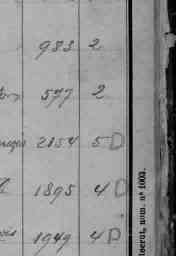 983 2
577 2
2154 5 D
1895 4 D
1949 4 D
num. nº 1003.